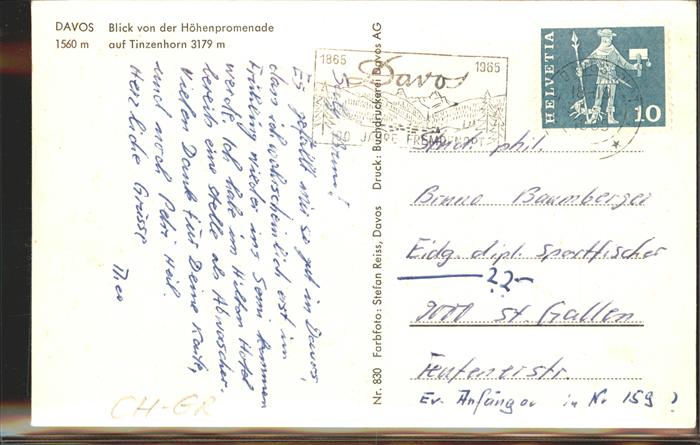 DAVOS Blick von der Höhenpromenade
1560 m auf Tinzenhorn 3179 m
Bruno!
Es gefällt mir so gut in Davos,
dass ich wahrscheinlich erst im
Frühling wieder ins Semi kommen
werde. Ich habe im Hilton Hotel
bereits eine Stelle als Abwascher.
Vielen Dank für Deine Karte,
und noch Petri Heil.
Herzliche Grüsse
CH-GR
Nr. 830 Farbfoto: Stefan Reiss, Davos Druck: Buchdruckerei Davos AG
1865 1965
Davos
100 JAHRE
HELVETIA
10
phil.
Bruno Baumberger
Eidg. dipl. Sportfischer
??
9000 St. Gallen
Ev. Anfänger in Nr 159 ?